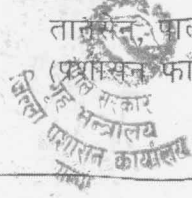 तानसेन, पाल
(प्रशासन फाँ
नेपाल सरकार
गृह मन्त्रालय
जिल्ला प्रशासन कार्यालय
पाल्पा